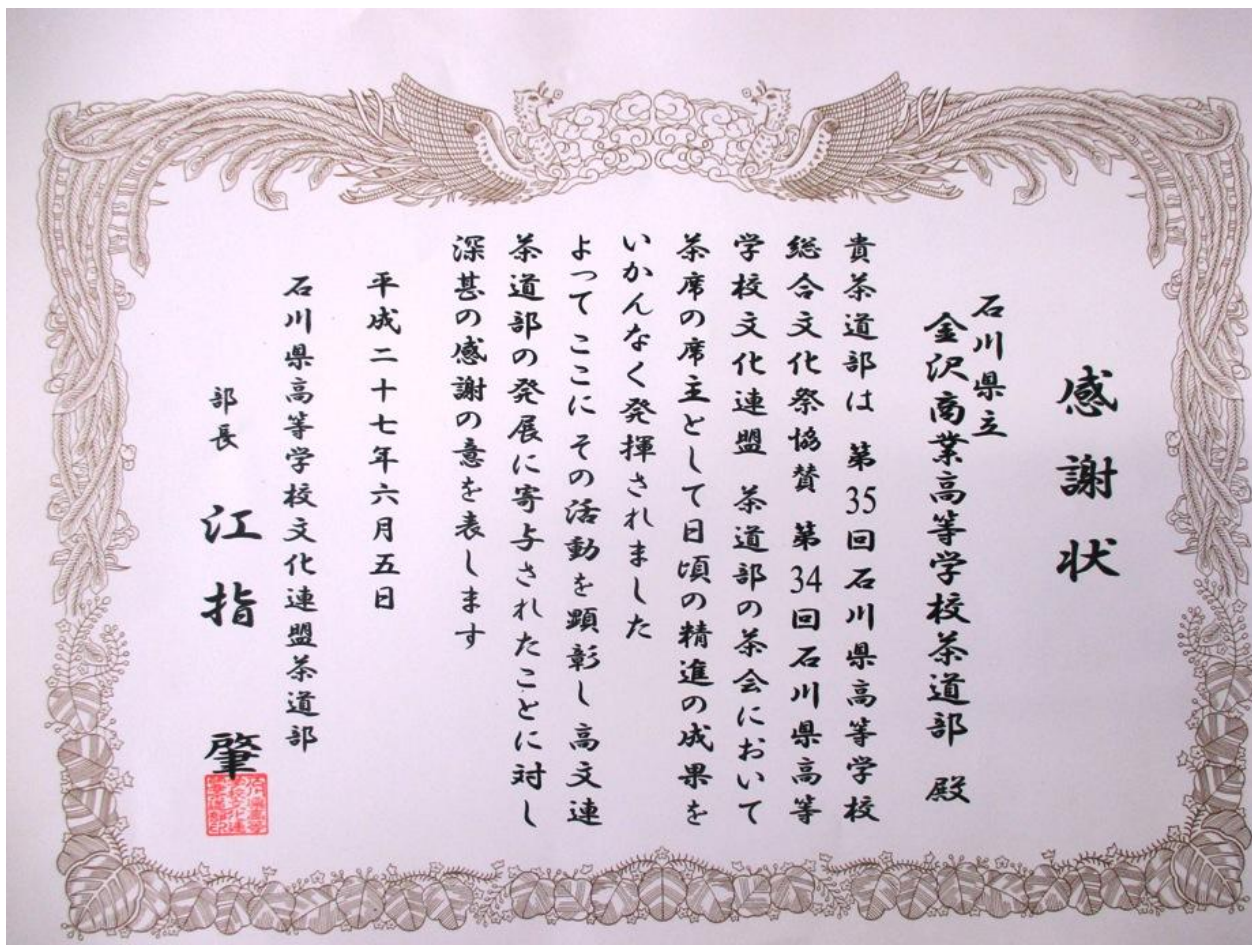 感謝状
石川県立
金沢商業高等学校茶道部 殿
貴茶道部は 第35回石川県高等学校
総合文化祭協賛 第34回石川県高等
学校文化連盟 茶道部の茶会において
茶席の席主として日頃の精進の成果を
いかんなく発揮されました
よってここに その活動を顕彰し高文連
茶道部の発展に寄与されたことに対し
深甚の感謝の意を表します
平成二十七年六月五日
石川県高等学校文化連盟茶道部
部長 江指 肇